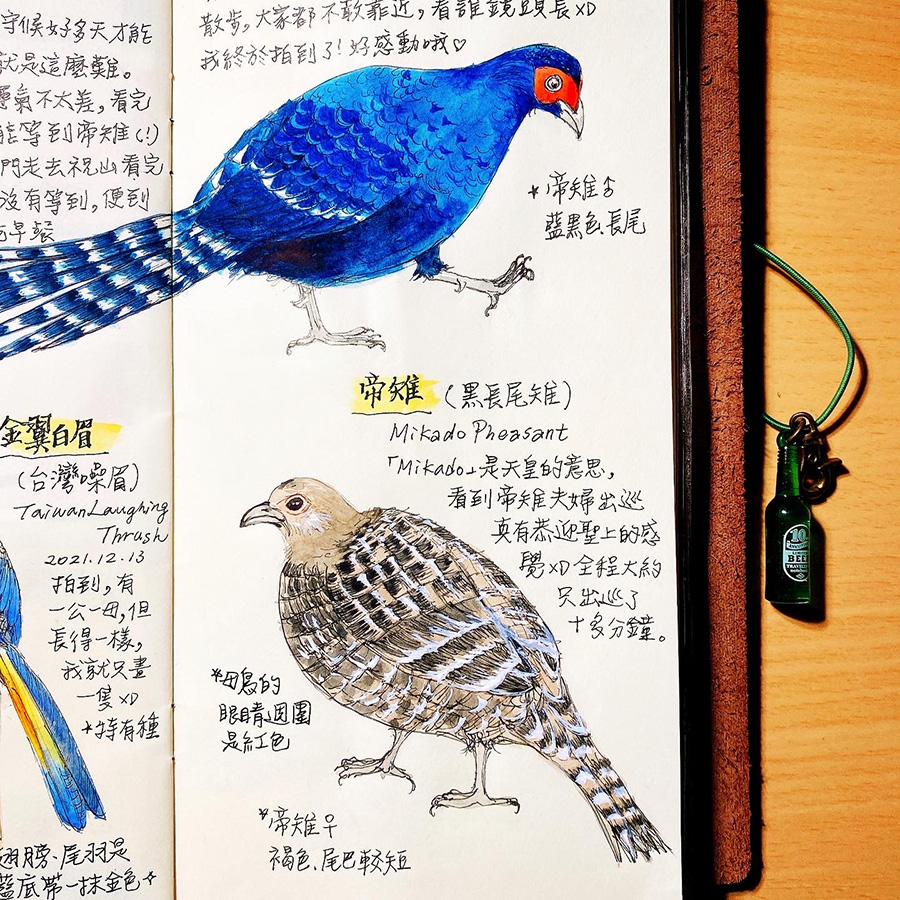 守候好多天才能
就是這麼難。
運氣不太差,看完
能等到帝雉(!)
門走去祝山看完
沒有等到,便到
早餐
金翼白眉
(台灣噪眉)
Taiwan Laughing
Thrush
2021.12.13
拍到,有
一公一母,但
長得一樣,
我就只畫
一隻 XD
*特有種
翅膀、尾羽是
藍底帶一抹金色
散步,大家都不敢靠近,看誰鏡頭長XD
我終於拍到了!好感動哦♡
*帝雉♂
藍黑色、長尾
帝雉(黑長尾雉)
Mikado Pheasant
「Mikado」是天皇的意思,
看到帝雉夫婦出巡
真有恭迎聖上的感
覺XD 全程大約
只出巡了
十多分鐘。
*母鳥的
眼睛週圍
是紅色
*帝雉♀
褐色、尾巴較短
10
BEER
TRAVELER'S
notebook